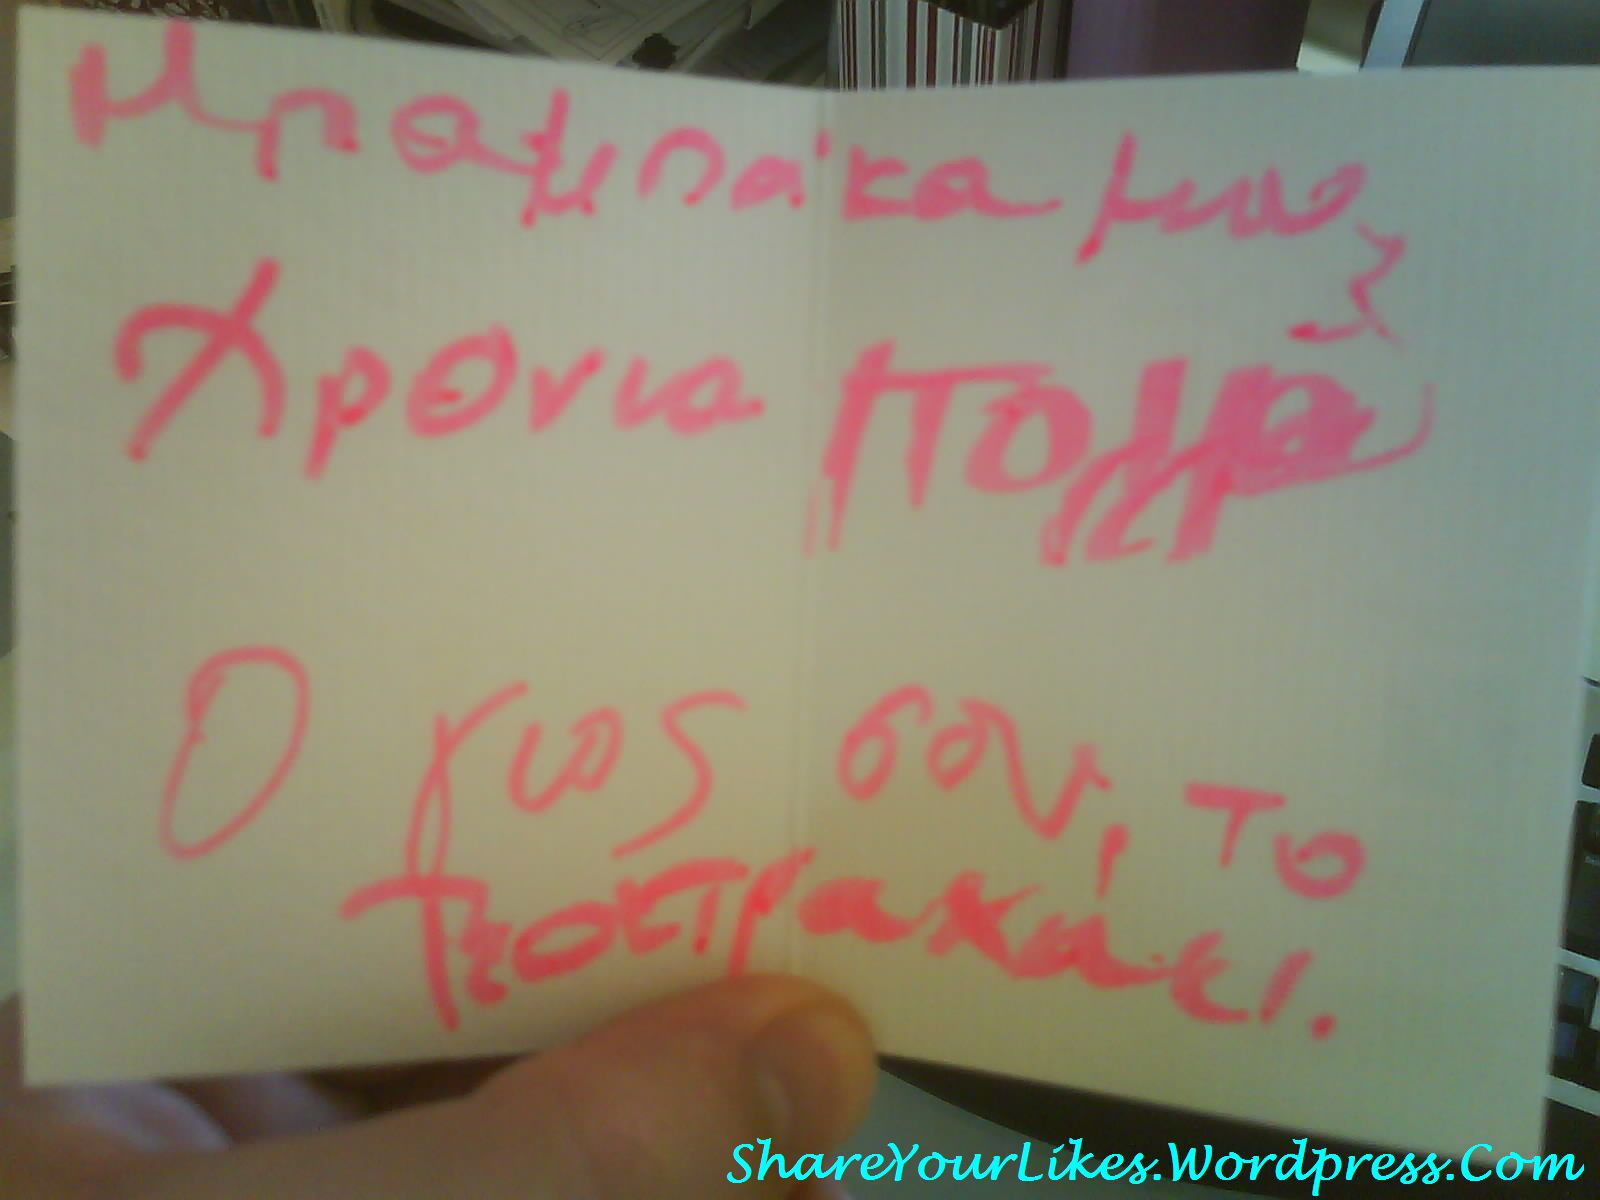 Μπαμπάκα μου
Χρόνια Πολλά
Ο γιος σου, το
Τεστρακάκι.
ShareYourLikes.Wordpress.Com